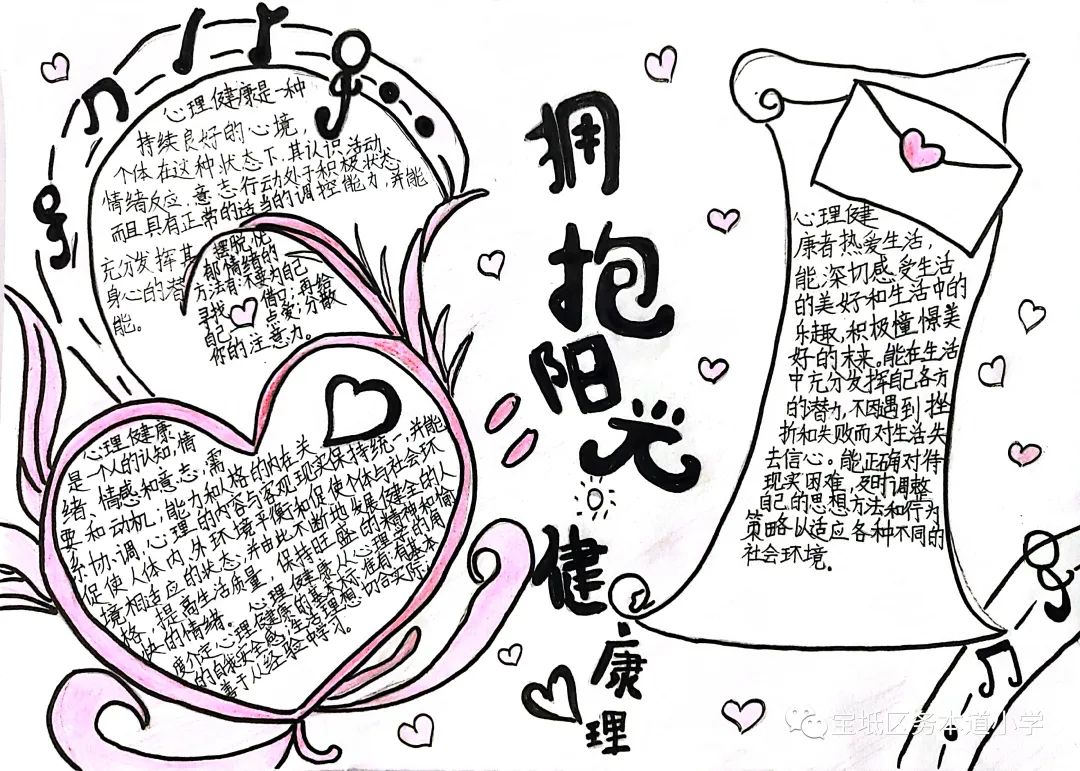 心理健康是一种
持续良好的心境，
个体在这种状态下，其认识活动、
情绪反应、意志行动处于积极状态，
而且具有正常的适当的调控能力，并能
充分发挥其
身心的潜
能。
摆脱忧
郁情绪的
方法有：不要为自己
寻找 借口；再给
自己一点爱；分散
你的注意力。
心理健康
是一个人的认知，情
绪、情感和意志，需
要和动机，能力和人格的内在关
系协调，心理的内容与客观现实保持统一，并能
促使人体内、外环境平衡和促使个体与社会环
境相适应的状态，并由此不断地发展健全的人
格，提高生活质量，保持旺盛的精神和愉
快的情绪。心理健康从心理学的角
度介定心理健康的基本标准有有基本
的自我安全感，生活理想切合实际，
善于从经验中学习。
拥
抱
阳
光
健
康
心理
心理健
康者热爱生活，
能深切感受生活
的美好和生活中的
乐趣，积极憧憬美
好的未来。能在生活
中充分发挥自己各方
的潜力，不因遇到挫
折和失败而对生活失
去信心。能正确对待
现实困难，及时调整
自己的思想方法和行为
策略以适应各种不同的
社会环境。
宝坻区务本道小学